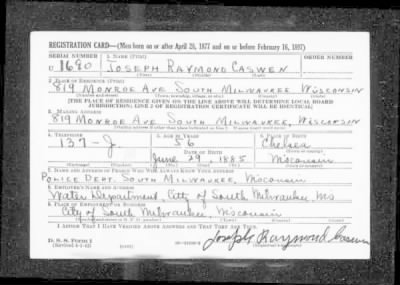 REGISTRATION CARD—(Men born on or after April 28, 1877 and on or before February 16, 1897)
SERIAL NUMBER 1. NAME (Print)
U 1690 JOSEPH RAYMOND CASWEN
(First) (Middle) (Last)
2. PLACE OF RESIDENCE (Print)
819 MONROE AVE SOUTH MILWAUKEE WISCONSIN
(Number and street) (Town, township, village, or city) (County) (State)
[THE PLACE OF RESIDENCE GIVEN ON THE LINE ABOVE WILL DETERMINE LOCAL BOARD
JURISDICTION; LINE 2 OF REGISTRATION CERTIFICATE WILL BE IDENTICAL]
3. MAILING ADDRESS
819 MONROE AVE SOUTH MILWAUKEE, WISCONSIN
[Mailing address if other than place indicated on line 2. If same insert word same]
4. TELEPHONE 5. AGE IN YEARS 6. PLACE OF BIRTH
137-J 56 Chelsea
DATE OF BIRTH (Town or county)
June 29, 1885 Wisconsin
(Exchange) (Number) (Mo.) (Day) (Yr.) (State or country)
7. NAME AND ADDRESS OF PERSON WHO WILL ALWAYS KNOW YOUR ADDRESS
POLICE DEPT. SOUTH MILWAUKEE, WISCONSIN
8. EMPLOYER'S NAME AND ADDRESS
Water Department, City of South Milwaukee, Wis
9. PLACE OF EMPLOYMENT OR BUSINESS
City of South Milwaukee, Wisconsin
(Number and street or R. F. D. number) (Town) (County) (State)
I AFFIRM THAT I HAVE VERIFIED ABOVE ANSWERS AND THAT THEY ARE TRUE.
D. S. S. Form 1
(Revised 4-1-42) (over)
Joseph Raymond Caswen